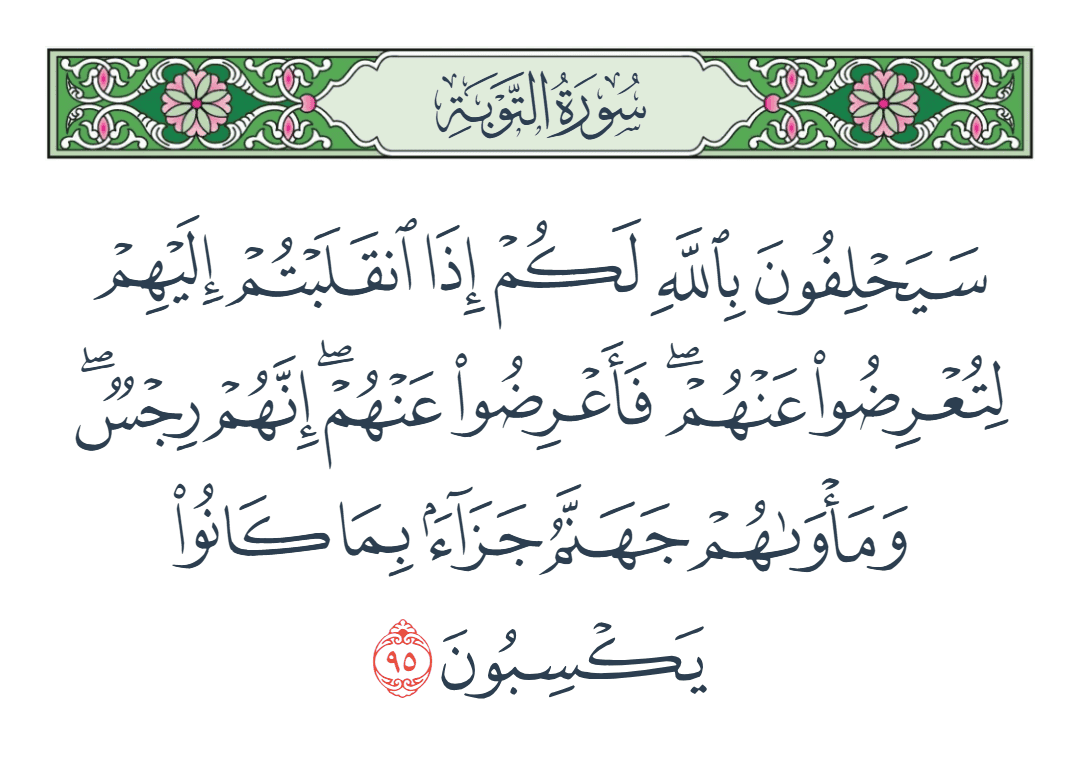 سُورَةُ التَّوۡبَةِ
سَيَحۡلِفُونَ بِٱللَّهِ لَكُمۡ إِذَا ٱنقَلَبۡتُمۡ إِلَيۡهِمۡ
لِتُعۡرِضُواْ عَنۡهُمۡۖ فَأَعۡرِضُواْ عَنۡهُمۡۖ إِنَّهُمۡ رِجۡسٞۖ
وَمَأۡوَىٰهُمۡ جَهَنَّمُ جَزَآءَۢ بِمَا كَانُواْ
يَكۡسِبُونَ ٩٥